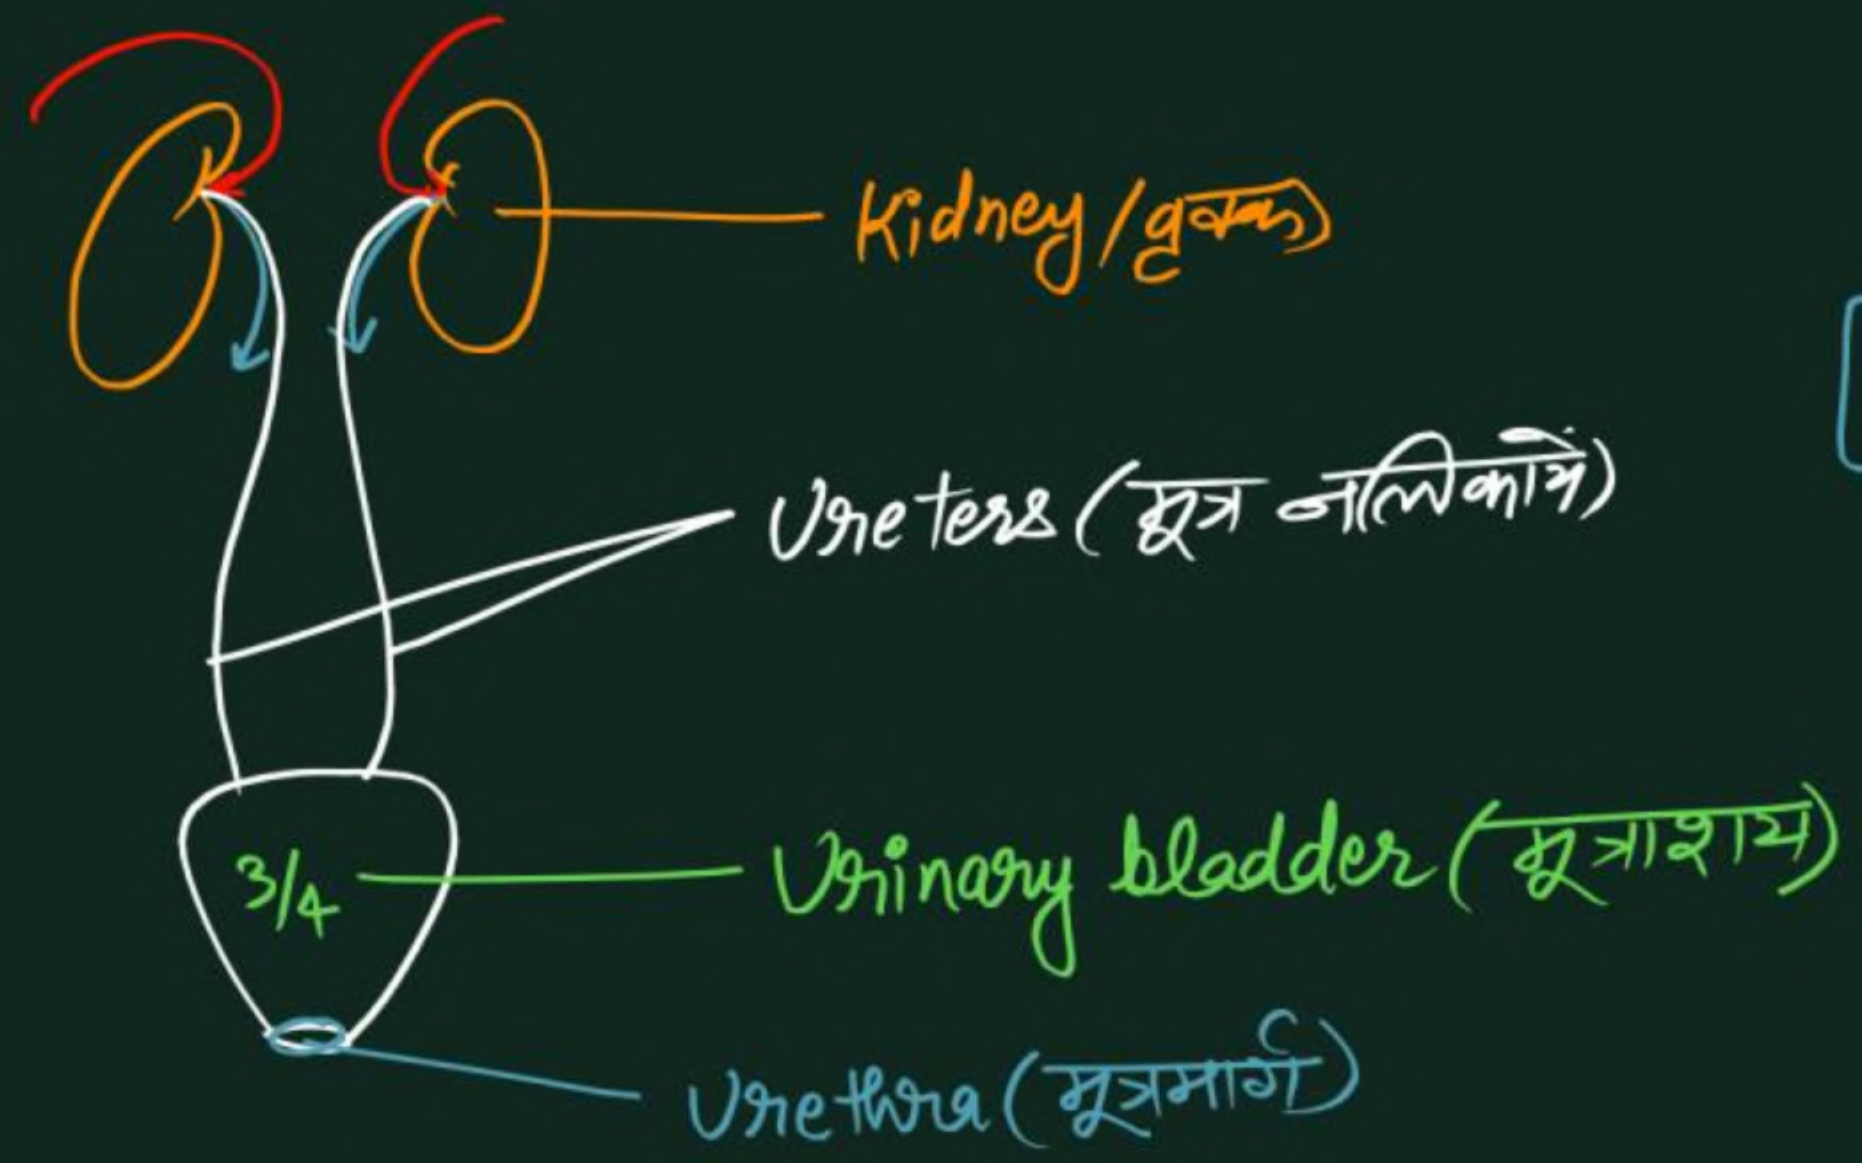 Kidney/वृक्क
Ureters (मूत्र नलिकायें)
3/4
Urinary bladder (मूत्राशय)
Urethra (मूत्रमार्ग)